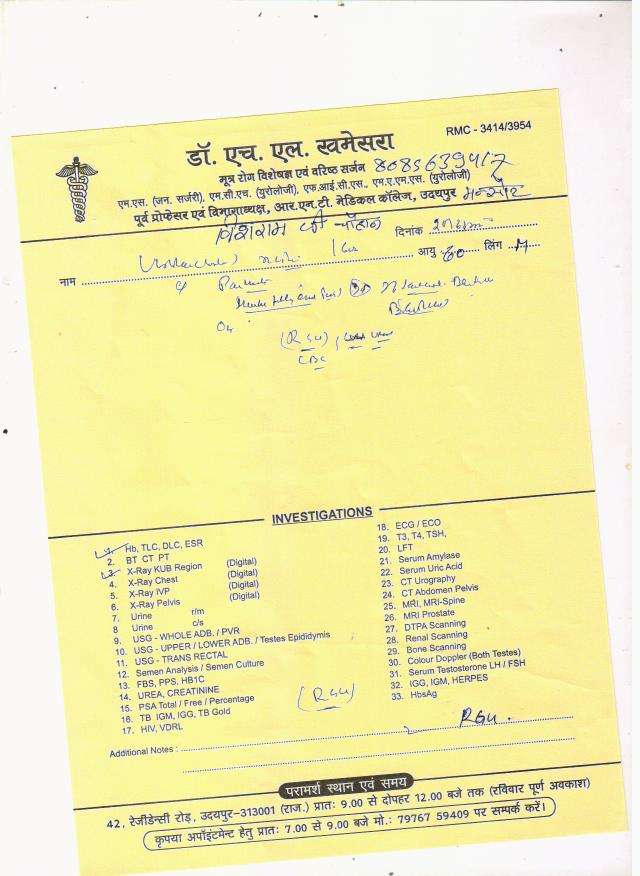 RMC - 3414/3954
डॉ. एच. एल. खमेसरा
मूत्र रोग विशेषज्ञ एवं वरिष्ठ सर्जन
एम.एस. (जन. सर्जरी), एम.सी.एच. (यूरोलोजी), एफ.आई.सी.एस., एम.ए.एम.एस. (यूरोलोजी)
पूर्व प्रोफेसर एवं विभागाध्यक्ष, आर.एन.टी. मेडिकल कॉलेज, उदयपुर मन्सौर
जी चौहान दिनांक
नाम आयु 60 लिंग M
(RGU)
CBC
INVESTIGATIONS
1. Hb, TLC, DLC, ESR
2. BT CT PT
3. X-Ray KUB Region (Digital)
4. X-Ray Chest (Digital)
5. X-Ray IVP (Digital)
6. X-Ray Pelvis (Digital)
7. Urine r/m
8 Urine c/s
9. USG - WHOLE ADB. / PVR
10. USG - UPPER / LOWER ADB. / Testes Epididymis
11. USG - TRANS RECTAL
12. Semen Analysis / Semen Culture
13. FBS, PPS, HB1C
14. UREA, CREATININE
15. PSA Total / Free / Percentage
16. TB IGM, IGG, TB Gold
17. HIV, VDRL
18. ECG / ECO
19. T3, T4, TSH,
20. LFT
21. Serum Amylase
22. Serum Uric Acid
23. CT Urography
24. CT Abdomen Pelvis
25. MRI, MRI-Spine
26. MRI Prostate
27. DTPA Scanning
28. Renal Scanning
29. Bone Scanning
30. Colour Doppler (Both Testes)
31. Serum Testosterone LH / FSH
32. IGG, IGM, HERPES
33. HbsAg
(RGU)
RGU.
Additional Notes :
परामर्श स्थान एवं समय
42, रेजीडेन्सी रोड़, उदयपुर-313001 (राज.) प्रातः 9.00 से दोपहर 12.00 बजे तक (रविवार पूर्ण अवकाश)
कृपया अपॉइंटमेन्ट हेतु प्रातः 7.00 से 9.00 बजे मो.: 79767 59409 पर सम्पर्क करें।